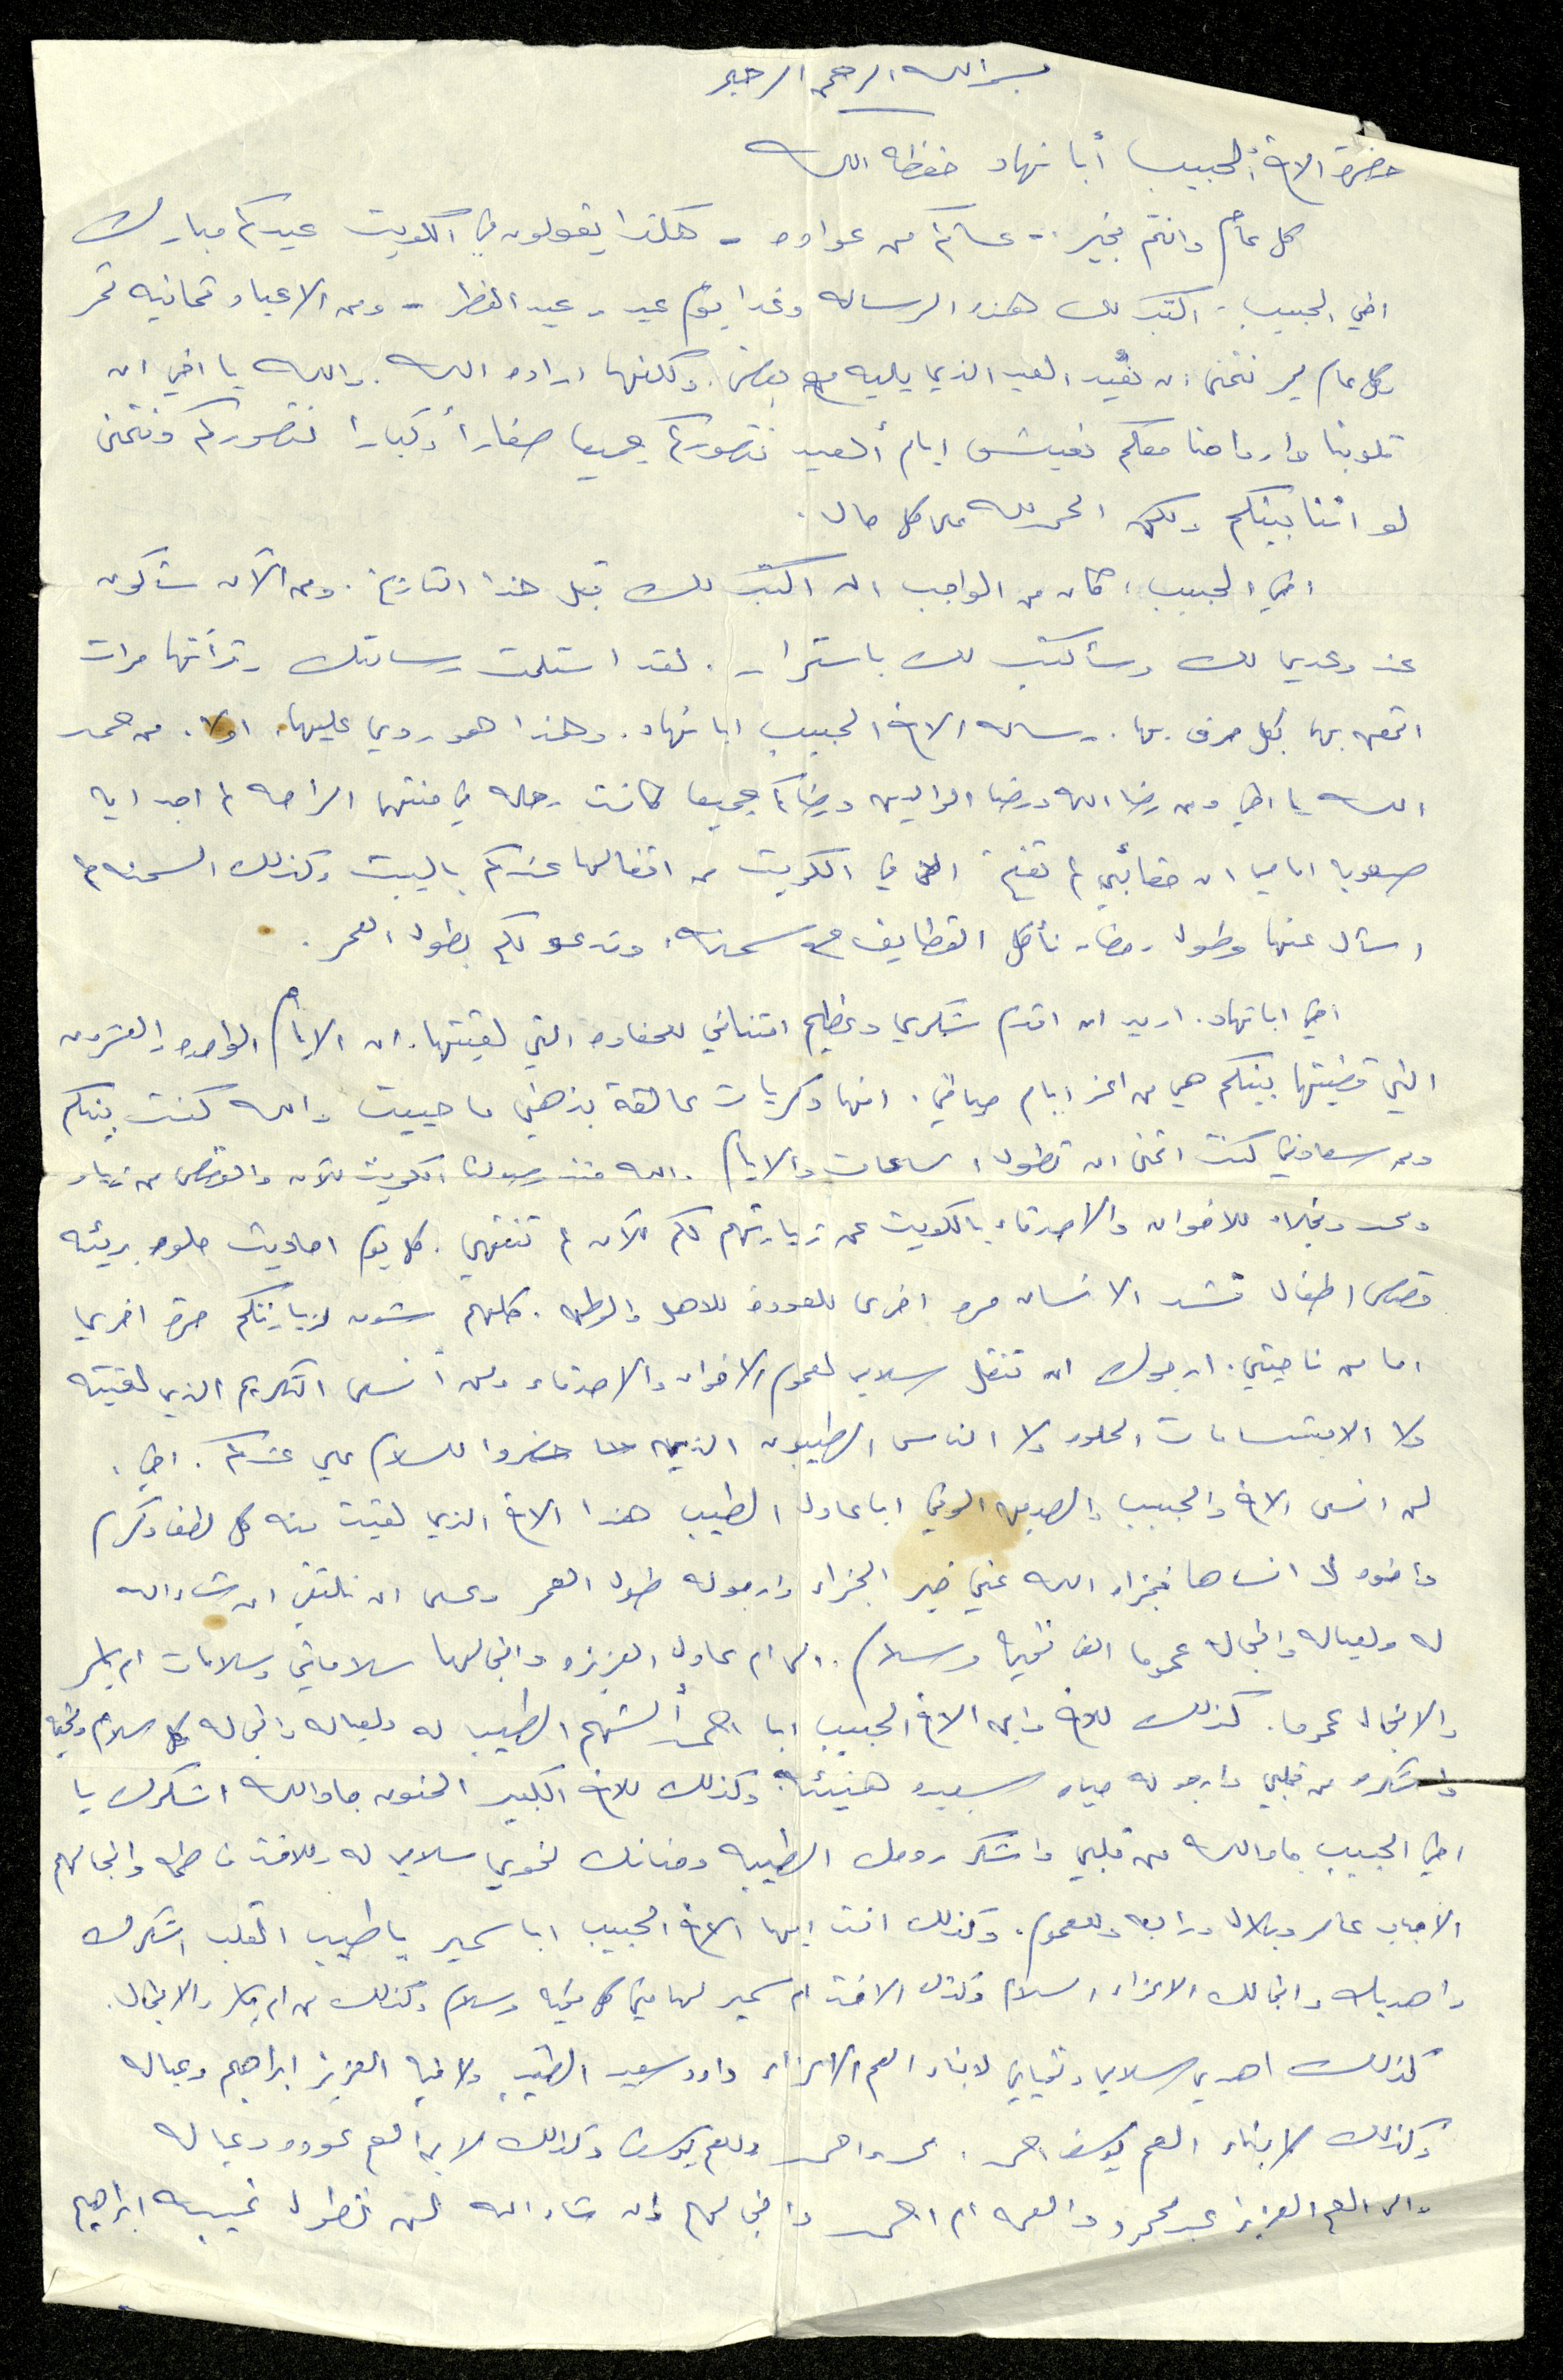 بسم الله الرحمن الرحيم
حضرة الاخ الحبيب أبا نهاد حفظه الله
كل عام وانتم بخير - عساكم من عواده - هكذا يقولون في الكويت عيدكم مبارك
اخي الحبيب. اكتب لك هذه الرساله وغدا يوم عيد - عيد الفطر - ومن الاعياد ثمانيه تمر
وكل عام يمر نتمنى ان نعيد العيد الذي يليه مع بعض. ولكنها اراده الله. والله يا اخي ان
قلوبنا وارواحنا معكم نعيش ايام العيد نتصوركم جميعا صغارأ وكبارا نتصوركم ونتمنى
لو اننا بينكم ولكن الحمد لله على كل حال.
اخي الحبيب، كان من الواجب ان اكتب لك قبل هذا التاريخ. ومن الآن سأكون
عند وعدي لك وسأكتب لك باستمرار. لقد استلمت رسالتك وقرأتها مرات
اتمعن بها بكل حرف بها. رساله الاخ الحبيب ابا نهاد. وهذا هو ردي عليها، اولا. من حمد
الله يا اخي ومن رضا الله ورضا الوالدين ورضاكم جميعا كانت رحله في منتهى الراحه لم اجد ايه
صعوبه امامي ان حقائبي لم تفتح الا في الكويت من اقفالها عندكم بالبيت وكذلك السمنه لم
اسأل عنها وطول رمضان نأكل القطايف مع سمنه، وندعو لكم بطول العمر.
اخي ابا نهاد. اريد ان اقدم شكري وعظيم امتناني للحفاوه التي لقيتها. ان الايام الواحده والعشرون
التي قضيتها بينكم هي من اعز ايام حياتي. انها ذكريات عالقة بذهني ما حييت والله كنت بينكم
ومن سعادتي كنت اتمنى ان تطول الساعات والايام. والله منذ وصولنا الكويت للآن والقصص من زياد
ومحمد ونجلاء للاخوان والاصدقاء بالكويت عن زيارتهم لكم للآن لم تنتهي. كل يوم احاديث حلوه بريئه
قصص اطفال تشد الانسان مره اخرى للعودة للاهل والوطن. كلهم شوق لزيارتكم مرة اخرى
اما من ناحيتي. ارجوك ان تنقل سلامي لعموم الاخوان والاصدقاء ولن أنسى التكريم الذي لقيته
ولا الابتسامات الحلوه ولا الناس الطيبون الذين حضروا للسلام علي عندكم. اخي.
لن انسى الاخ والحبيب والصديق الوفي ابا عادل الطيب هذا الاخ الذي لقيت منه كل لطف وكرم
واخوه لا انساها فجزاه الله عني خير الجزاء وارجو له طول العمر وعسى ان نلتقي ان شاء الله
له ولعياله وانجاله عموما الف تحية وسلام. الى ام عادل العزيزه وانجالها سلاماتي وسلامات ام
والانجال عموما. كذلك للاخ وابن الاخ الحبيب ابا احمد الشهم الطيب له ولعياله وانجاله كل سلام وتحيه
واشكره من قلبي وارجو له حياه سعيده هنيئة. وكذلك للاخ الكبير الحنون جادالله اشكرك يا
اخي الحبيب جادالله من قلبي واشكر روحك الطيبه وحنانك نحوي سلامي له وللاخت فاطمه وانجالهم
الاحباب عامر وبلال ورابعه وللعموم. وكذلك انت ايها الاخ الحبيب ابا سمير يا طيب القلب اشكرك
واهديك وانجالك الاعزاء السلام وكذلك الاخت ام سمير لها مني كل تحيه وسلام وكذلك من ام والانجال.
كذلك اهدي سلامي وتحياتي لابناء العم الاعزاء داود سعيد الطيب ولاخيه العزيز ابراهيم وعياله
وكذلك لابناء العم يوسف احمد. محمد واحمد وللعم يوسف وكذلك لابن العم عوده وعياله
والى العم العزيز عبد محمود والعمه ام احمد وانجالهم وان شاء الله لن تطول غيبه ابراهيم